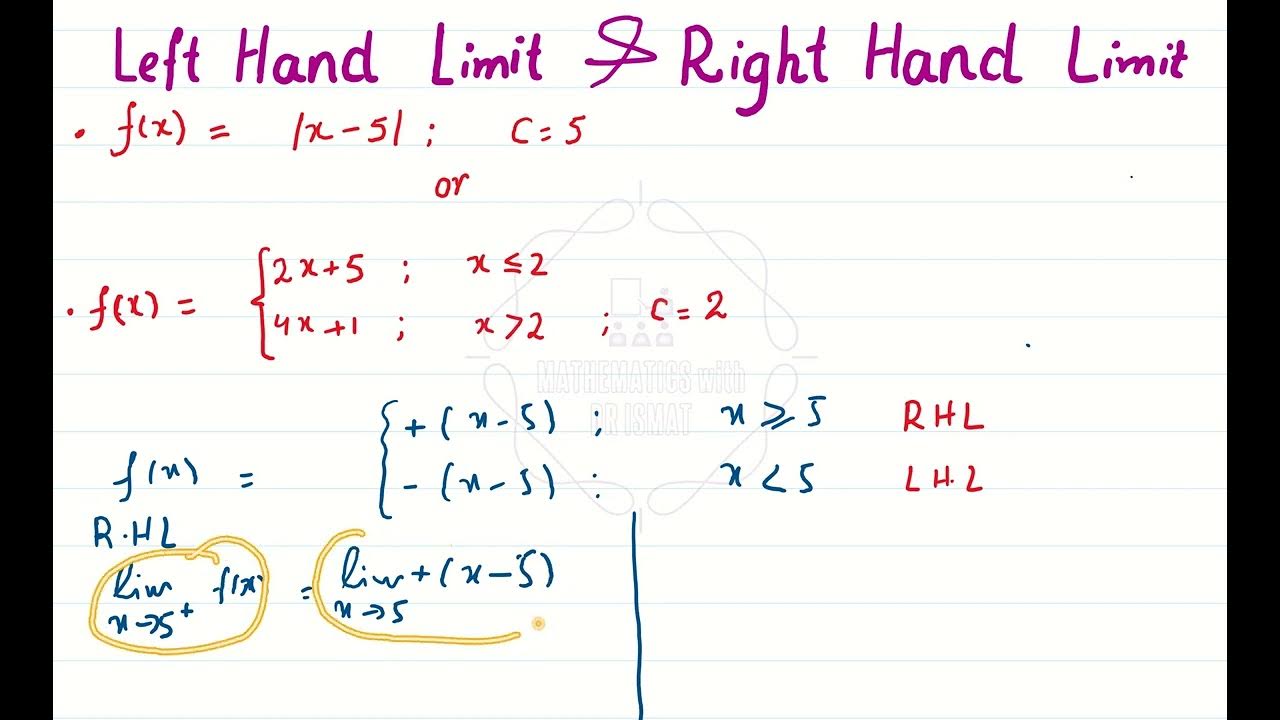 Left Hand Limit & Right Hand Limit
• f(x) = |x-5| ; C = 5
or
• f(x) = { 2x+5 ; x ≤ 2
4x+1 ; x > 2 ; C = 2
MATHEMATICS with
DR ISMAT
f(x) = { +(x-5) ; x ⩾ 5 RHL
-(x-5) : x < 5 LH.L
R.HL
lim x→5⁺ f(x) = lim x→5 +(x-5)